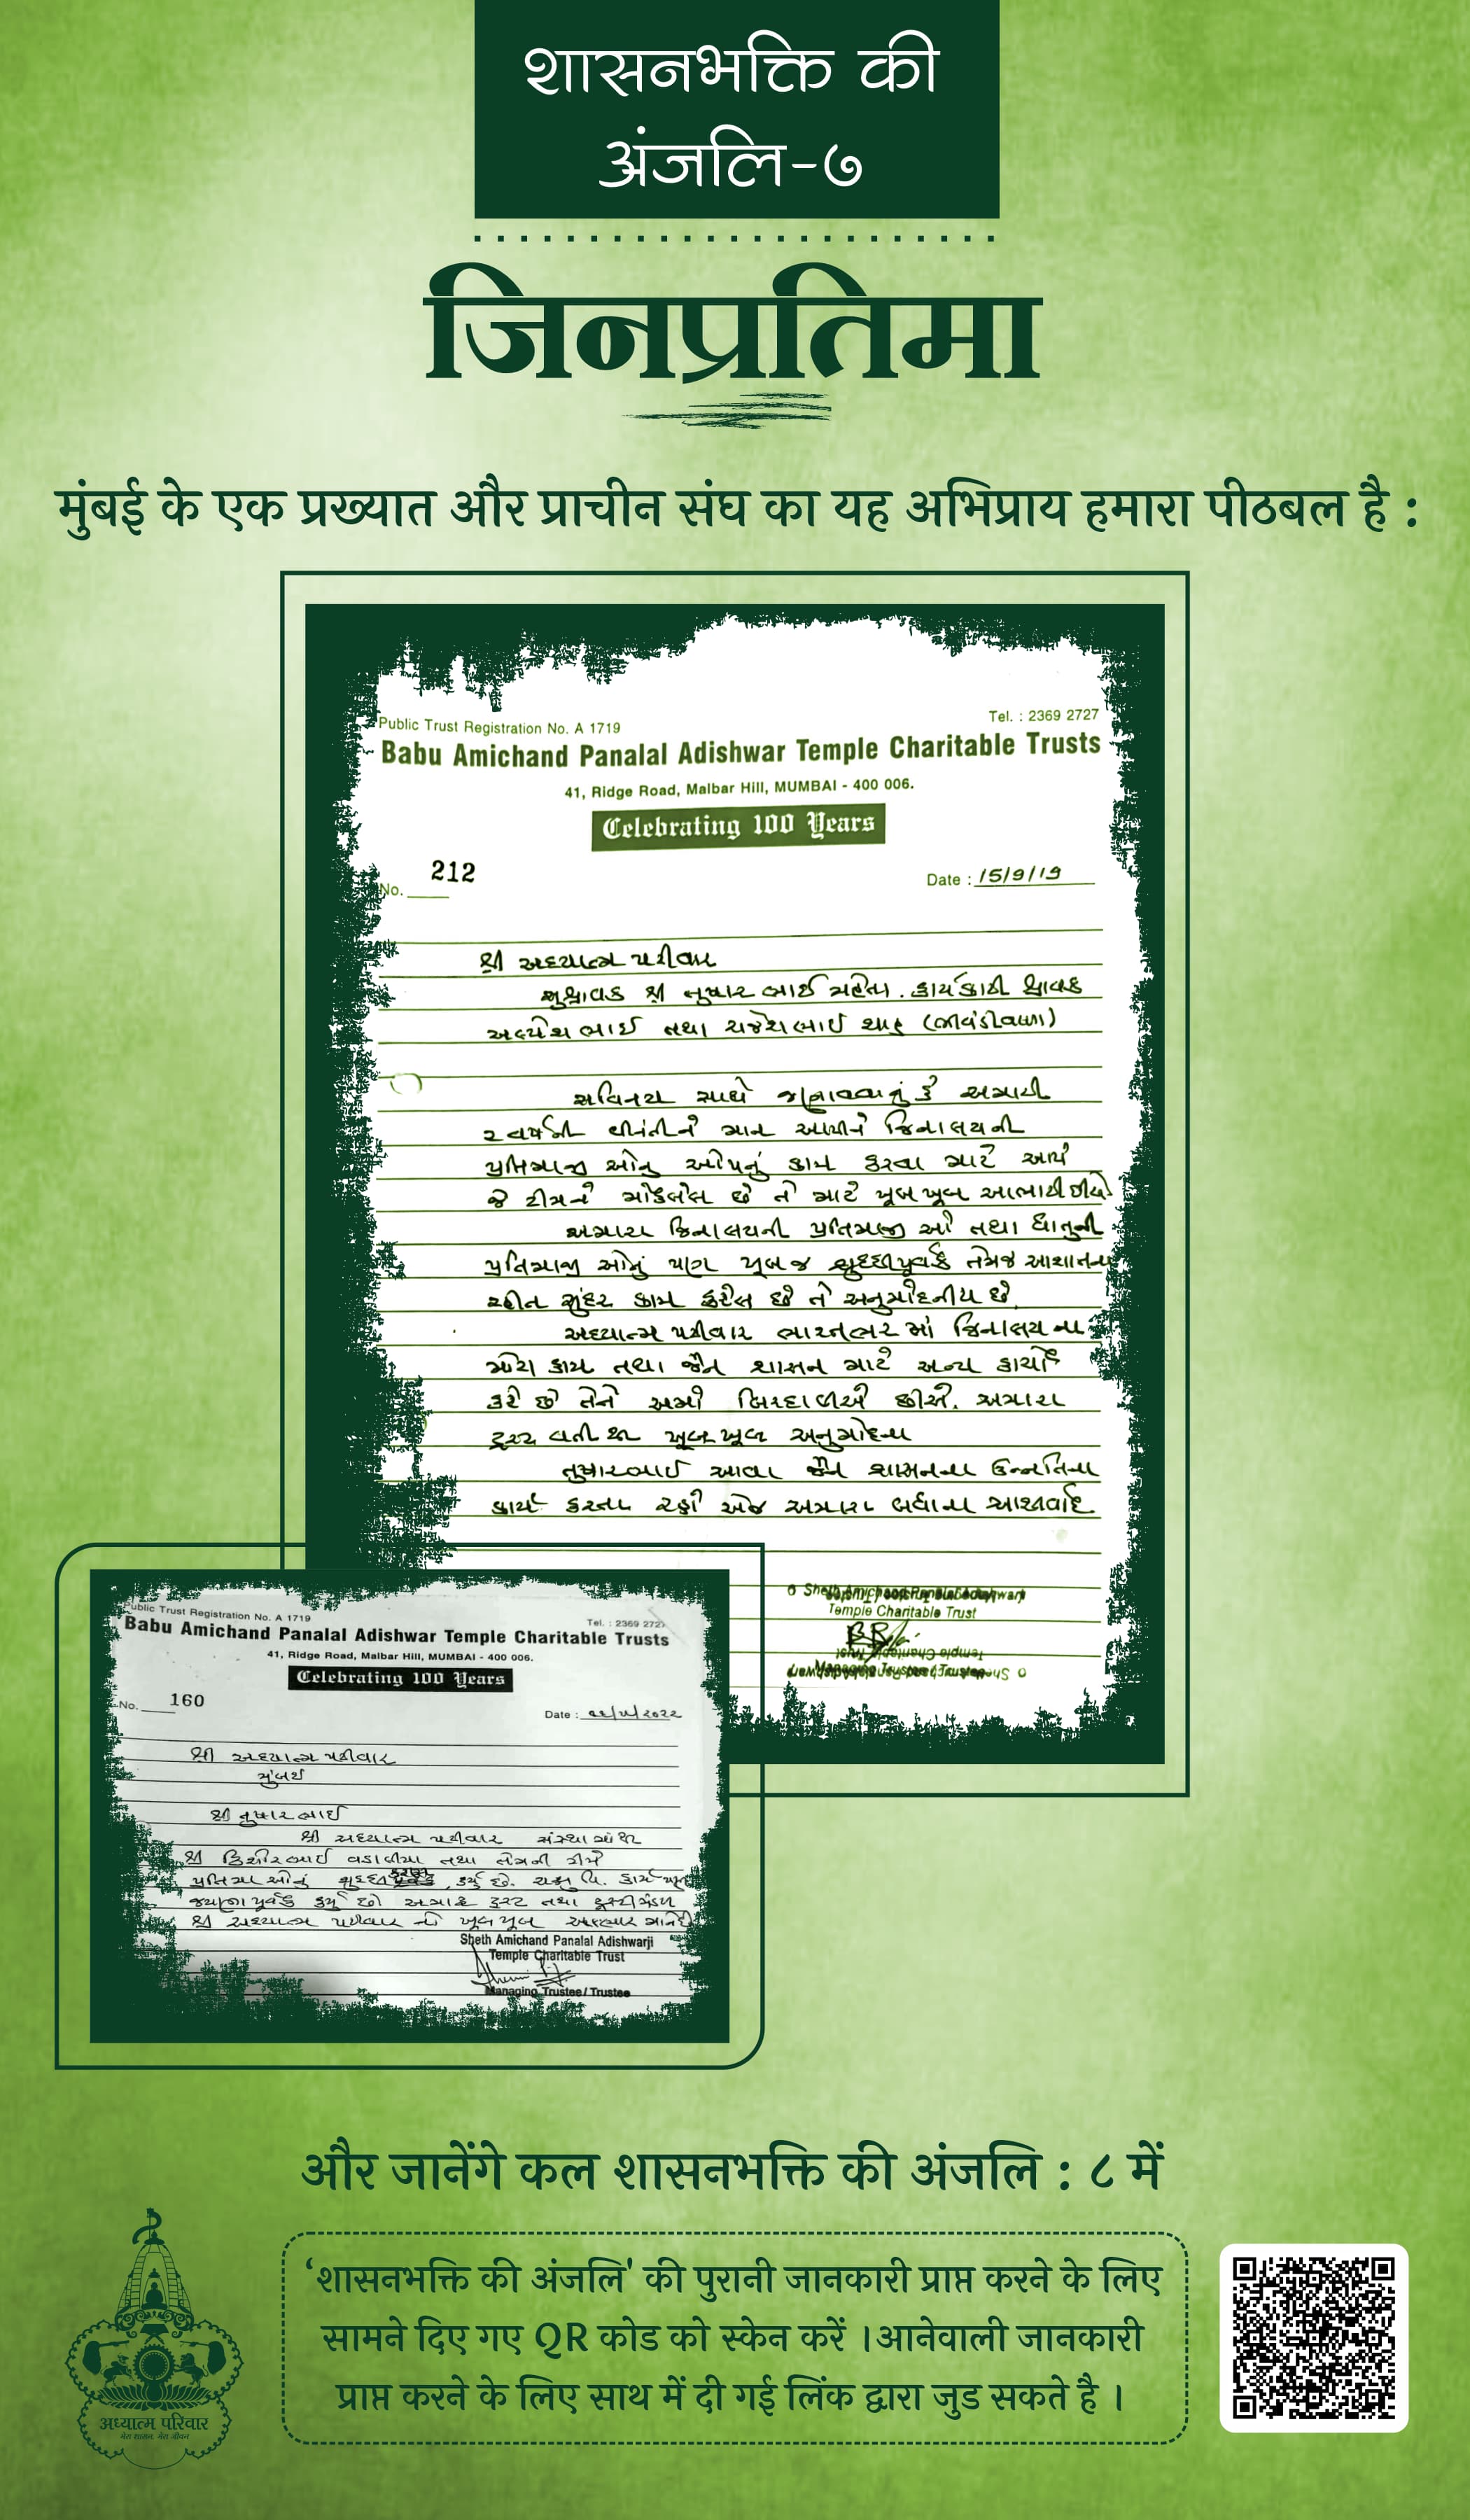 शासनभक्ति की
अंजलि-७
जिनप्रतिमा
मुंबई के एक प्रख्यात और प्राचीन संघ का यह अभिप्राय हमारा पीठबल है :
Public Trust Registration No. A 1719
Tel. : 2369 2727
Babu Amichand Panalal Adishwar Temple Charitable Trusts
41, Ridge Road, Malbar Hill, MUMBAI - 400 006.
Celebrating 100 Years
No. 212
Date : 15/9/19
શ્રી અધ્યાત્મ પરીવાર
સુશ્રાવક શ્રી તુષારભાઈ મહેતા. કાર્યકારી શ્રાવક
અલ્પેશભાઈ તથા રાજેશભાઈ શાહ (ભીવંડીવાળા)
સવિનય સાથે જણાવવાનું કે અમારી
૨ વર્ષની વીનંતીને માન આપીને જિનાલયની
પ્રતિમાજી ઓનુ ઓપનું કામ કરવા માટે આપે
જે ટીમને મોકલેલ છે તે માટે ખૂબ ખૂબ આભારી છીએ
અમારા જિનાલયની પ્રતિમાજી ઓ તથા ધાતુની
પ્રતિમાજી ઓનું પણ ખૂબ જ શુદ્ધીપૂર્વક તેમજ આશાતના
રહીત સુંદર કામ કરેલ છે તે અનુમોદનીય છે.
અધ્યાત્મ પરીવાર ભારતભર માં જિનાલય ના
મોટા કામ તથા જૈન શાસન માટે અન્ય કાર્યો
કરે છે તેને અમો બિરદાવીએ છીએ. અમારા
ટ્રસ્ટ વતી થી ખૂબ ખૂબ અનુમોદના
તુષારભાઈ આવા જૈન શાસનના ઉન્નતિના
કાર્ય કરતા રહો એજ અમારા બધાના આશીર્વાદ
Sheth Amichand Panalal Adishwarji
Temple Charitable Trust
Public Trust Registration No. A 1719
Tel. : 2369 2727
Babu Amichand Panalal Adishwar Temple Charitable Trusts
41, Ridge Road, Malbar Hill, MUMBAI - 400 006.
Celebrating 100 Years
No. 160
Date :
શ્રી અધ્યાત્મ પરીવાર
મુંબઈ
શ્રી તુષારભાઈ
શ્રી અધ્યાત્મ પરીવાર સંસ્થા
શ્રી કિશોરભાઈ વડાલીયા તથા તેમની ટીમે
પ્રતિમા ઓનું કર્યુ છે.
જયણા પૂર્વક કર્યુ છે અમારૂ ટ્રસ્ટ તથા ટ્રસ્ટીમંડળ
શ્રી અધ્યાત્મ પરીવાર નો ખૂબ ખૂબ આભાર માને છે
Sheth Amichand Panalal Adishwarji
Temple Charitable Trust
Managing Trustee / Trustee
और जानेंगे कल शासनभक्ति की अंजलि : ८ में
‘शासनभक्ति की अंजलि' की पुरानी जानकारी प्राप्त करने के लिए
सामने दिए गए QR कोड को स्केन करें ।आनेवाली जानकारी
प्राप्त करने के लिए साथ में दी गई लिंक द्वारा जुड सकते है ।
अध्यात्म परिवार
मेरा शासन, मेरा जीवन